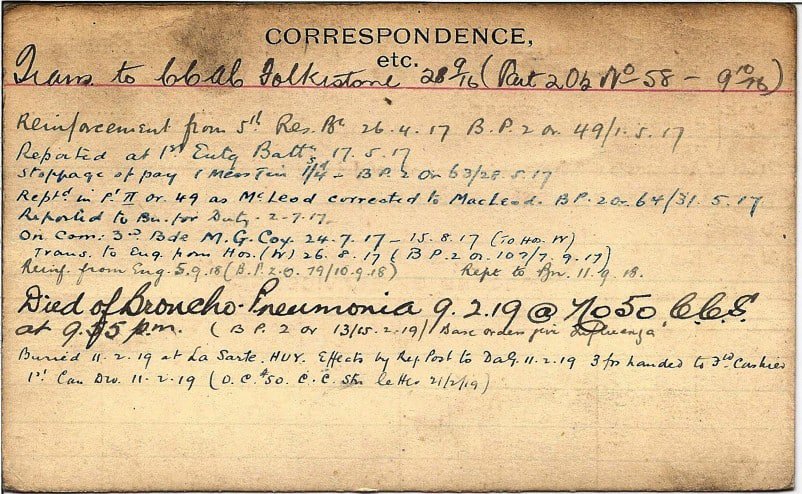 CORRESPONDENCE,
etc.
Trans. to CCAC Folkestone 28 9/16 (Part 2 Ob No 58 - 9 10/16)
Reinforcement from 5th Res. Bn 26.4.17 B.P.2 or 49/1.5.17
Reported at 1st Entg Battn 17.5.17
Stoppage of pay 1 Mess Tin 1/4 - B P 2 Or 63/28.5.17
Reptd in Pt II or. 49 as McLeod corrected to MacLeod. B P. 2 or 64/31.5.17
Reported to Bn. for Duty. 2-7-17.
On Com: 3rd Bde M.G. Coy. 24.7.17 - 15.8.17 (To Hos. W)
Trans. to Eng. from Hos. (W) 26.8.17 (B P. 2 or. 107/7.9.17)
Reinf. from Eng 5.9.18 (B.P.2.O. 79/10.9.18) Rept to Bn. 11.9.18.
Died of Broncho-Pneumonia 9.2.19 @ No 50. C.C.S.
at 9.55 p.m. (B P. 2 or 13/15.2.19) Base orders give Influenza
Buried 11-2-19 at La Sarte, HUY. Effects by Reg Post to DAG. 11-2-19 3 frs handed to 3rd Cashier
1st Can Div. 11-2-19 (O.C. #50. C.C. Stn letter 21/2/19)